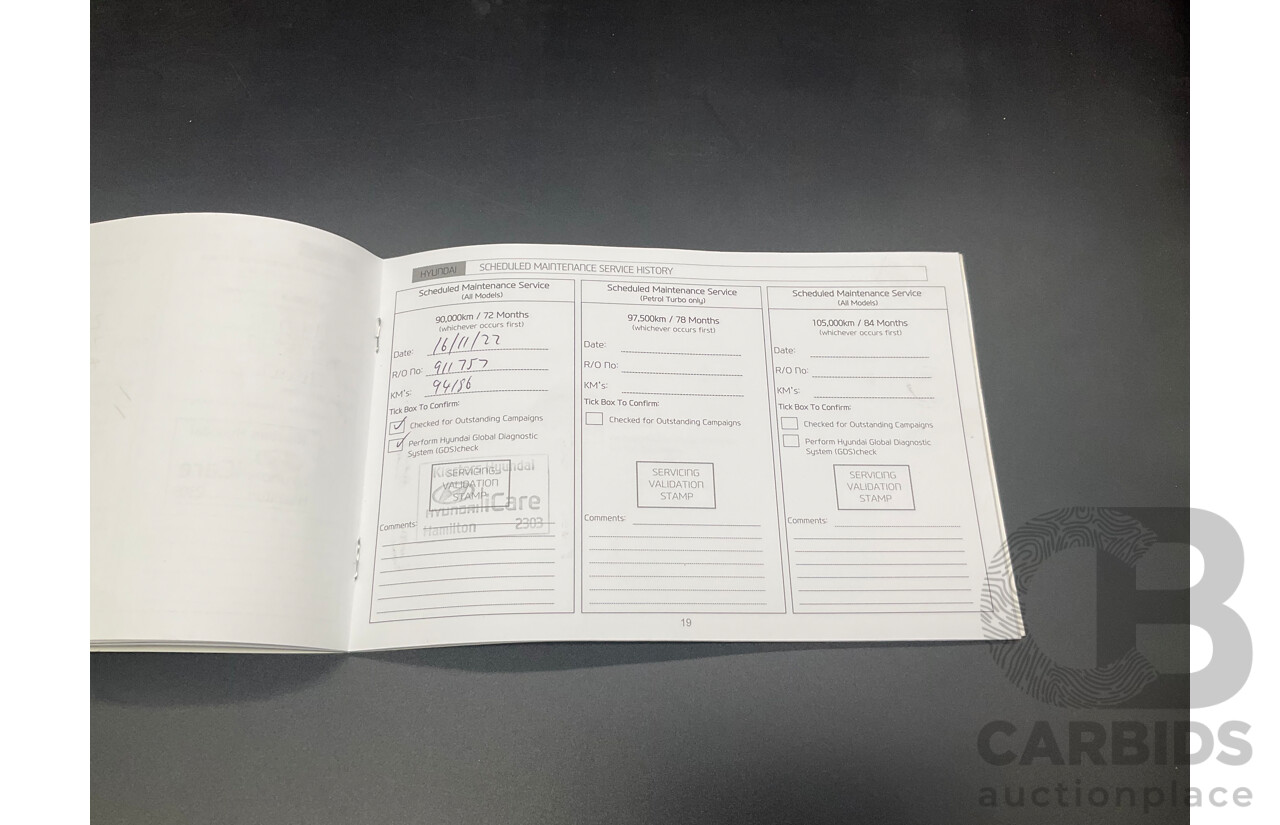 HYUNDAI SCHEDULED MAINTENANCE SERVICE HISTORY
Scheduled Maintenance Service
(All Models)
90,000km / 72 Months
(whichever occurs first)
Date: 16/11/22
R/O No: 911757
KM's: 94186
Tick Box To Confirm:
Checked for Outstanding Campaigns
Perform Hyundai Global Diagnostic
System (GDS)check
SERVICING
VALIDATION
STAMP
Hyundai
HYUNDAI iCare
Hamilton 2303
Comments:
Scheduled Maintenance Service
(Petrol Turbo only)
97,500km / 78 Months
(whichever occurs first)
Date:
R/O No:
KM's:
Tick Box To Confirm:
Checked for Outstanding Campaigns
SERVICING
VALIDATION
STAMP
Comments:
Scheduled Maintenance Service
(All Models)
105,000km / 84 Months
(whichever occurs first)
Date:
R/O No:
KM's:
Tick Box To Confirm:
Checked for Outstanding Campaigns
Perform Hyundai Global Diagnostic
System (GDS)check
SERVICING
VALIDATION
STAMP
Comments:
19
CB
CARBIDS
auctionplace